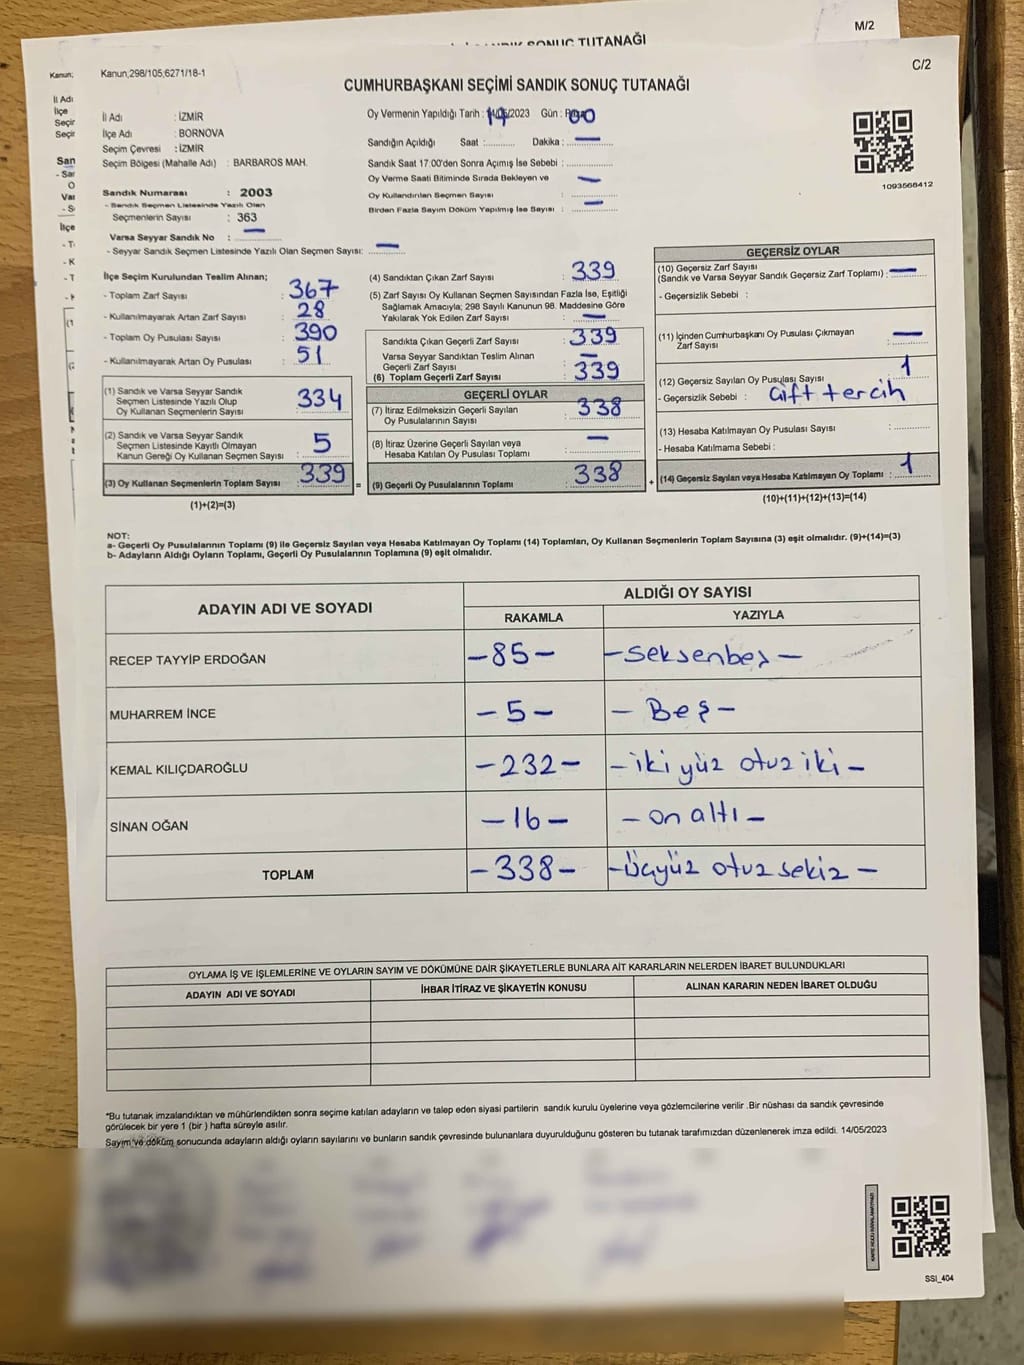 SONUÇ TUTANAĞI
M/2
Kanun;
İl Adı
İlçe
Seçir
Seçir
C/2
Kanun;298/105;6271/18-1
CUMHURBAŞKANI SEÇİMİ SANDIK SONUÇ TUTANAĞI
İl Adı : İZMİR
İlçe Adı : BORNOVA
Seçim Çevresi : İZMİR
Seçim Bölgesi (Mahalle Adı) : BARBAROS MAH.
Sandık Numarası : 2003
- Sandık Seçmen Listesinde Yazılı Olan
Seçmenlerin Sayısı : 363
Varsa Seyyar Sandık No : —
- Seyyar Sandık Seçmen Listesinde Yazılı Olan Seçmen Sayısı: —
Oy Vermenin Yapıldığı Tarih : /2023 Gün :
17 00
Sandığın Açıldığı Saat : Dakika : —
Sandık Saat 17:00'den Sonra Açımış İse Sebebi :
Oy Verme Saati Bitiminde Sırada Bekleyen ve —
Oy Kullandırılan Seçmen Sayısı :
Birden Fazla Sayım Döküm Yapılmış İse Sayısı : —
1093568412
İlçe Seçim Kurulundan Teslim Alınan;
- Toplam Zarf Sayısı : 367
- Kullanılmayarak Artan Zarf Sayısı : 28
- Toplam Oy Pusulası Sayısı : 390
- Kullanılmayarak Artan Oy Pusulası : 51
(1) Sandık ve Varsa Seyyar Sandık
Seçmen Listesinde Yazılı Olup
Oy Kullanan Seçmenlerin Sayısı : 334
(2) Sandık ve Varsa Seyyar Sandık
Seçmen Listesinde Kayıtlı Olmayan
Kanun Gereği Oy Kullanan Seçmen Sayısı : 5
(3) Oy Kullanan Seçmenlerin Toplam Sayısı : 339
(1)+(2)=(3)
(4) Sandıktan Çıkan Zarf Sayısı : 339
(5) Zarf Sayısı Oy Kullanan Seçmen Sayısından Fazla İse, Eşitliği
Sağlamak Amacıyla; 298 Sayılı Kanunun 98. Maddesine Göre
Yakılarak Yok Edilen Zarf Sayısı : —
Sandıkta Çıkan Geçerli Zarf Sayısı : 339
Varsa Seyyar Sandıktan Teslim Alınan
Geçerli Zarf Sayısı : —
(6) Toplam Geçerli Zarf Sayısı : 339
GEÇERLİ OYLAR
(7) İtiraz Edilmeksizin Geçerli Sayılan
Oy Pusulalarının Sayısı : 338
(8) İtiraz Üzerine Geçerli Sayılan veya
Hesaba Katılan Oy Pusulası Toplamı : —
= (9) Geçerli Oy Pusulalarının Toplamı : 338
GEÇERSİZ OYLAR
(10) Geçersiz Zarf Sayısı
(Sandık ve Varsa Seyyar Sandık Geçersiz Zarf Toplamı) : —
- Geçersizlik Sebebi :
(11) İçinden Cumhurbaşkanı Oy Pusulası Çıkmayan
Zarf Sayısı : —
(12) Geçersiz Sayılan Oy Pusulası Sayısı : 1
- Geçersizlik Sebebi : Çift tercih
(13) Hesaba Katılmayan Oy Pusulası Sayısı :
- Hesaba Katılmama Sebebi :
+ (14) Geçersiz Sayılan veya Hesaba Katılmayan Oy Toplamı : 1
(10)+(11)+(12)+(13)=(14)
NOT:
a- Geçerli Oy Pusulalarının Toplamı (9) ile Geçersiz Sayılan veya Hesaba Katılmayan Oy Toplamı (14) Toplamları, Oy Kullanan Seçmenlerin Toplam Sayısına (3) eşit olmalıdır. (9)+(14)=(3)
b- Adayların Aldığı Oyların Toplamı, Geçerli Oy Pusulalarının Toplamına (9) eşit olmalıdır.
ADAYIN ADI VE SOYADI ALDIĞI OY SAYISI
RAKAMLA YAZIYLA
RECEP TAYYİP ERDOĞAN -85- -seksenbeş-
MUHARREM İNCE -5- -Beş-
KEMAL KILIÇDAROĞLU -232- -iki yüz otuz iki-
SİNAN OĞAN -16- -on altı-
TOPLAM -338- -üçyüz otuz sekiz-
OYLAMA İŞ VE İŞLEMLERİNE VE OYLARIN SAYIM VE DÖKÜMÜNE DAİR ŞİKAYETLERLE BUNLARA AİT KARARLARIN NELERDEN İBARET BULUNDUKLARI
ADAYIN ADI VE SOYADI İHBAR İTİRAZ VE ŞİKAYETİN KONUSU ALINAN KARARIN NEDEN İBARET OLDUĞU
*Bu tutanak imzalandıktan ve mühürlendikten sonra seçime katılan adayların ve talep eden siyasi partilerin sandık kurulu üyelerine veya gözlemcilerine verilir .Bir nüshası da sandık çevresinde
görülecek bir yere 1 (bir ) hafta süreyle asılır.
Sayım ve döküm sonucunda adayların aldığı oyların sayılarını ve bunların sandık çevresinde bulunanlara duyurulduğunu gösteren bu tutanak tarafımızdan düzenlenerek imza edildi. 14/05/2023
SSI_404